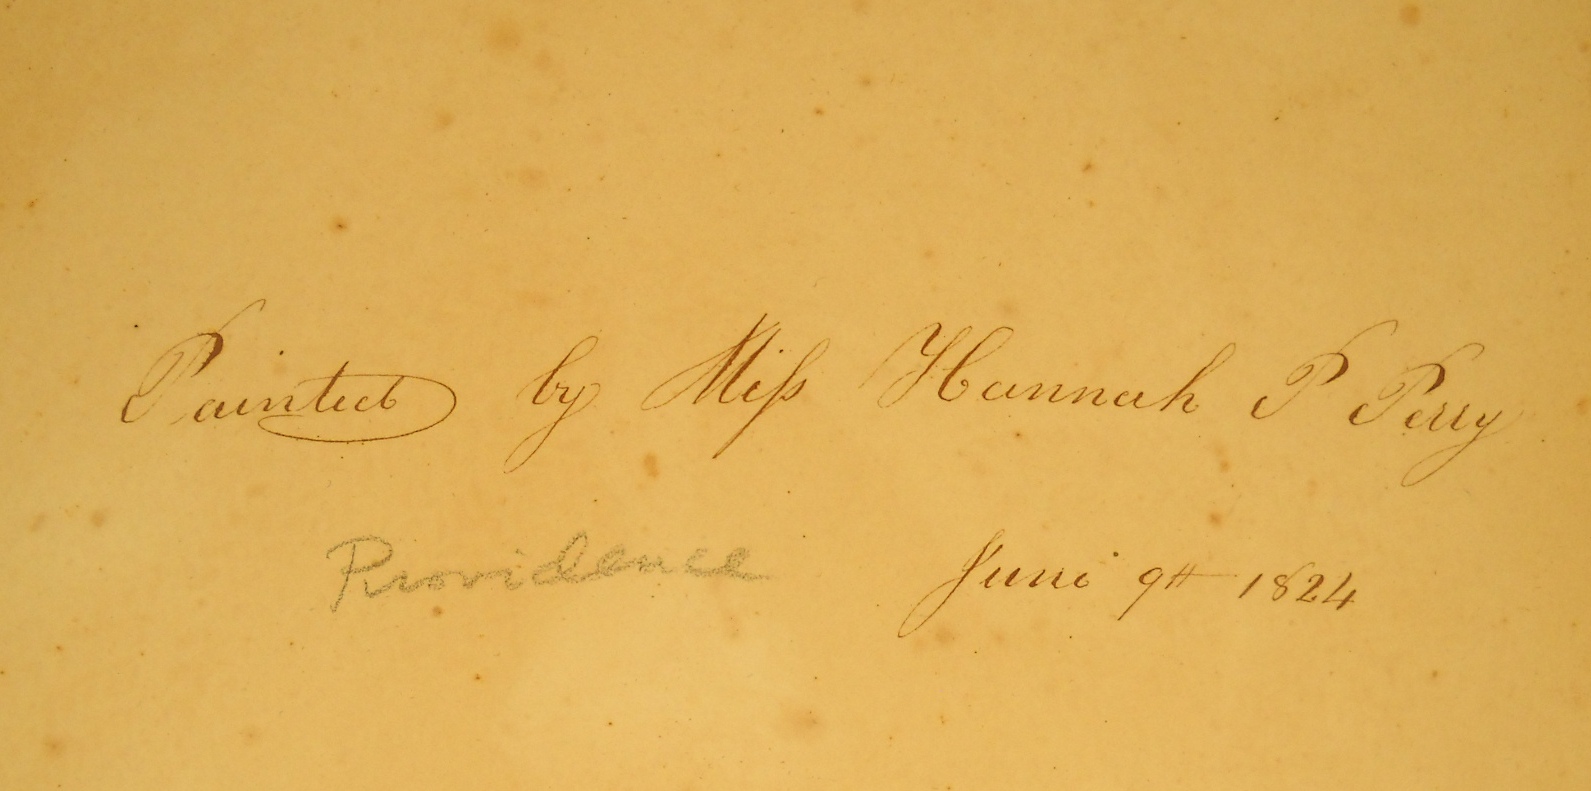 Painted by Miss Hannah P Perry
Providence June 9th 1824